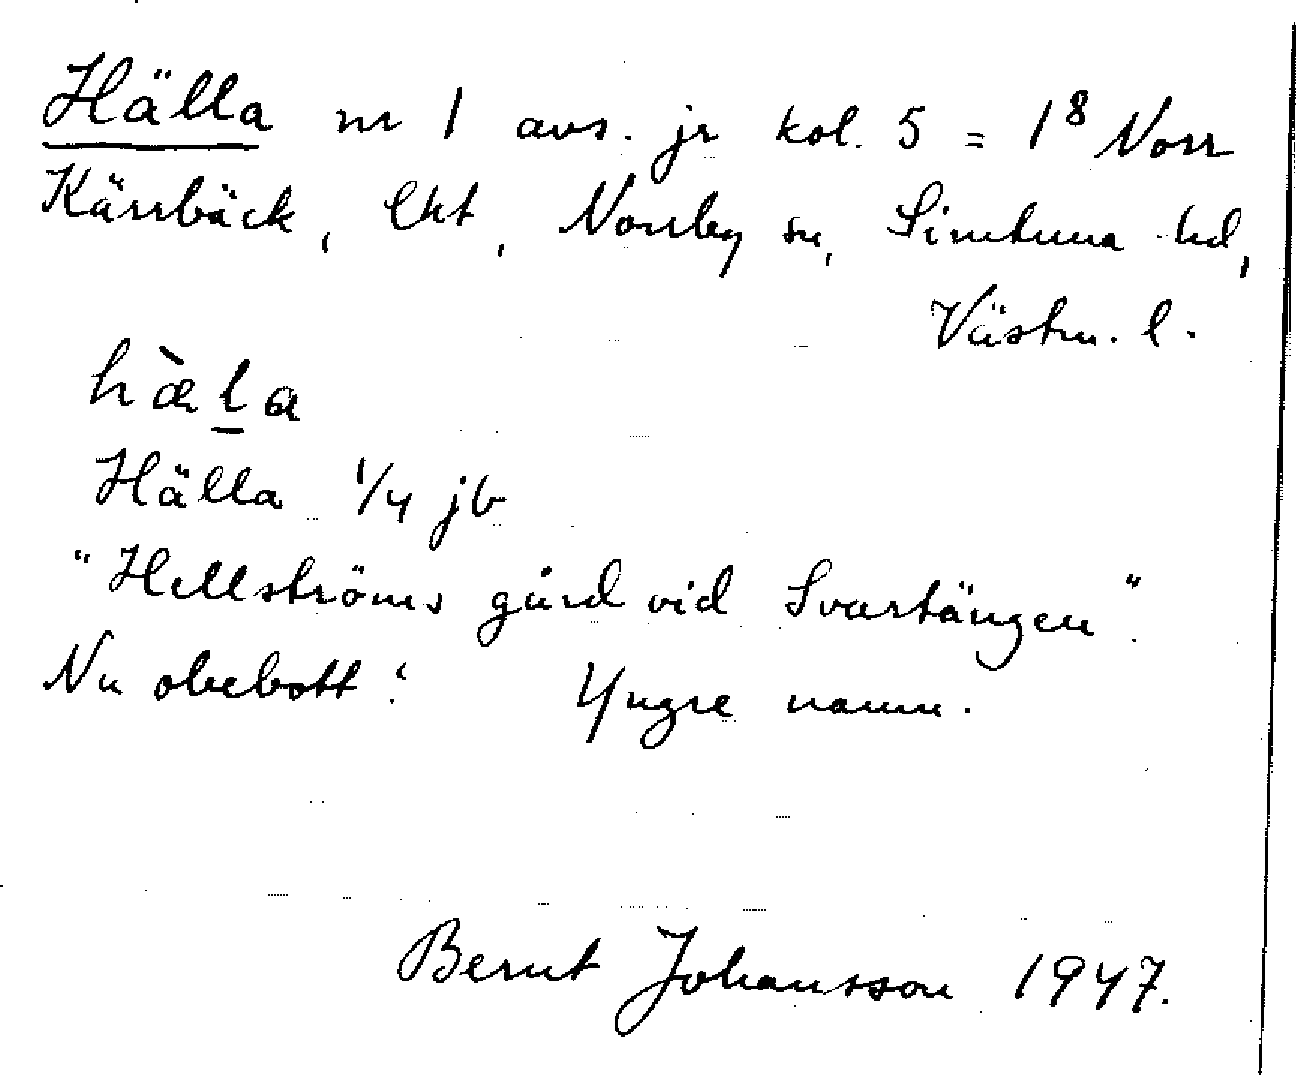 Hälla nr 1 avs. jr kol. 5 = 1⁸ Norr
Kärrbäck, Ekt, Norrby sn, Simtuna hd,
Västm. l.
hæ̀la
Hälla 1/4 jb
"Hellströms gård vid Svartängen".
Nu obebott! Yngre namn.
Bernt Johansson 1947.